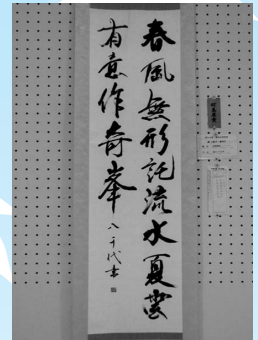 春風無形託流水夏雲
有意作奇峯 八千代書